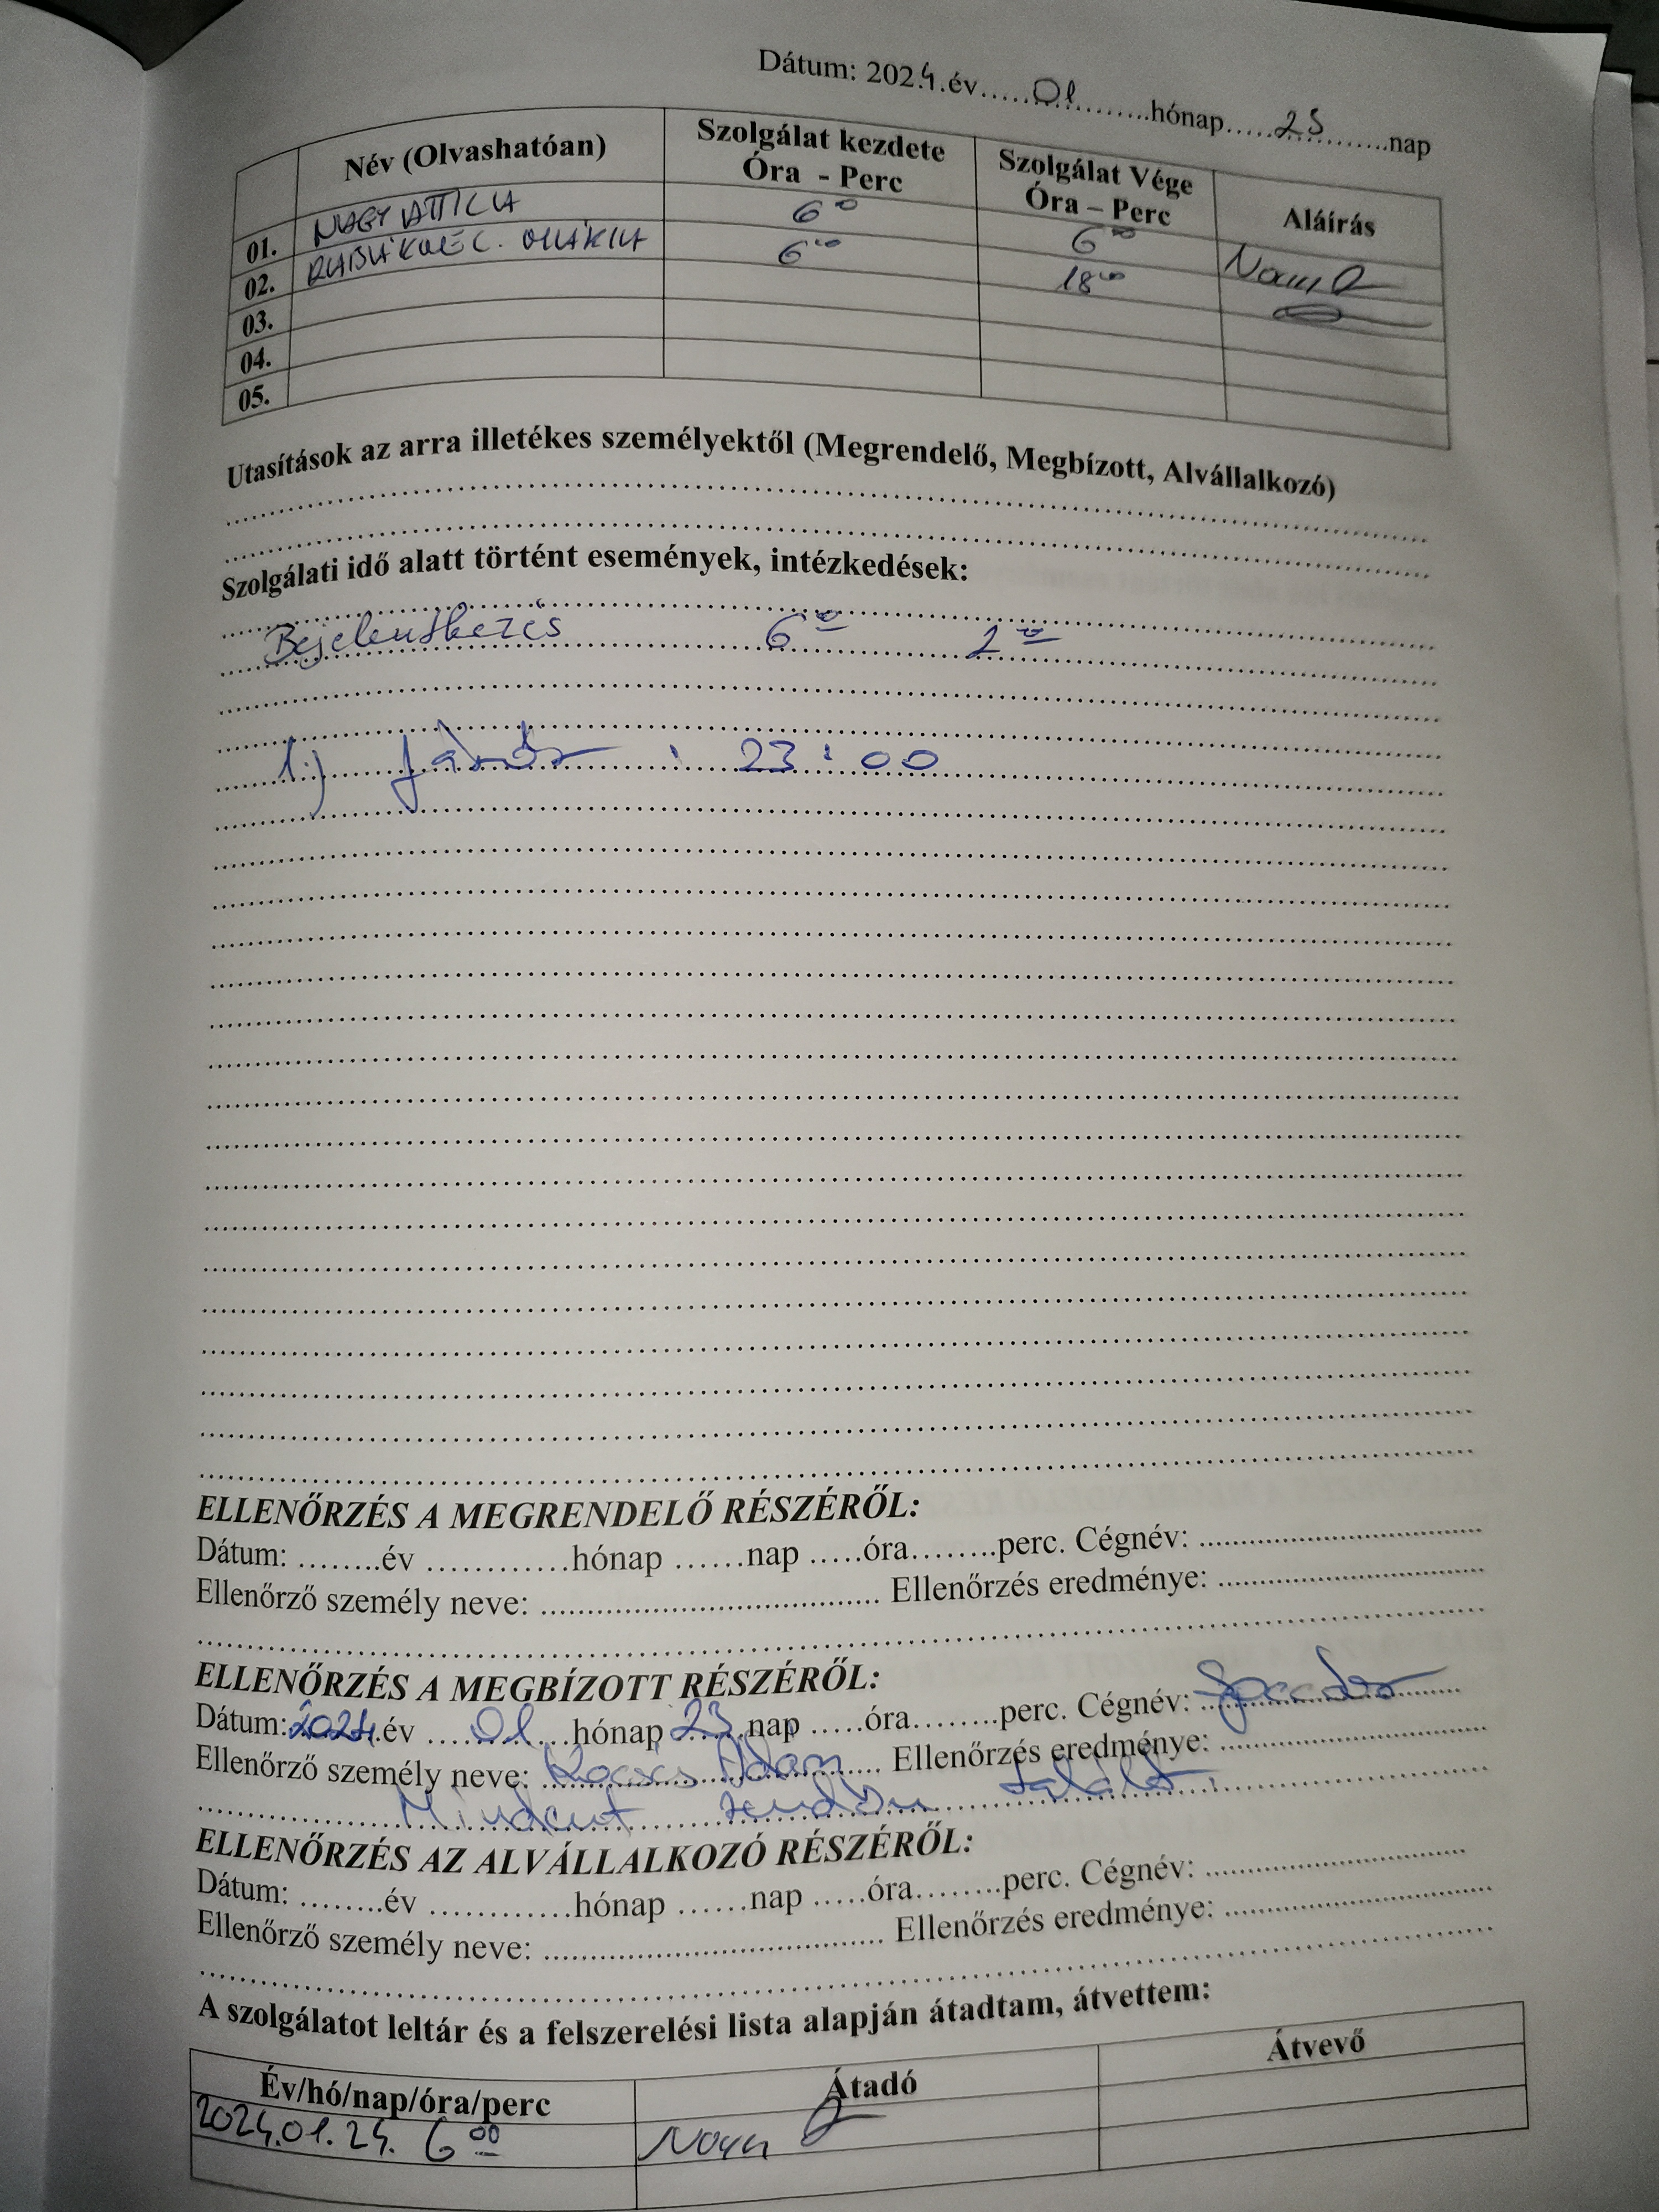 Dátum: 2024.év.....01..........hónap.....23..........nap
Név (Olvashatóan) Szolgálat kezdete Óra - Perc Szolgálat Vége Óra – Perc Aláírás
01. NAGY ATTILA 6 00 6 00
02. 6 00 18 00
03.
04.
05.
Utasítások az arra illetékes személyektől (Megrendelő, Megbízott, Alvállalkozó)
Szolgálati idő alatt történt események, intézkedések:
Bejelentkezés 6 00 2 00
1.) Járőr : 23:00
ELLENŐRZÉS A MEGRENDELŐ RÉSZÉRŐL:
Dátum: ........év ............hónap ......nap .....óra........perc. Cégnév: ..............................
Ellenőrző személy neve: .................................... Ellenőrzés eredménye: ..............................
ELLENŐRZÉS A MEGBÍZOTT RÉSZÉRŐL:
Dátum: 2024.év ....01...hónap 23.nap .....óra........perc. Cégnév:
Ellenőrző személy neve: Kocsis Ádám Ellenőrzés eredménye: ..............................
Mindent rendben talált.
ELLENŐRZÉS AZ ALVÁLLALKOZÓ RÉSZÉRŐL:
Dátum: ........év ............hónap ......nap .....óra........perc. Cégnév: ..............................
Ellenőrző személy neve: .................................... Ellenőrzés eredménye: ..............................
A szolgálatot leltár és a felszerelési lista alapján átadtam, átvettem:
Év/hó/nap/óra/perc Átadó Átvevő
2024.01.24. 6 00